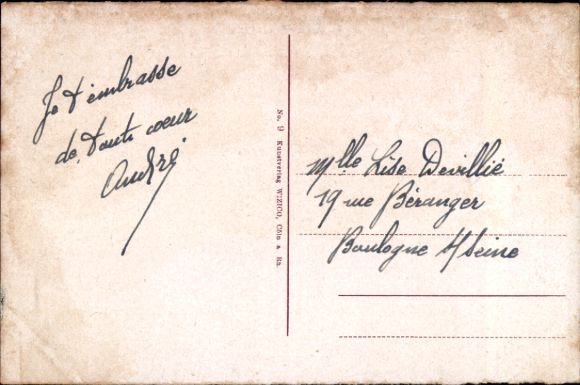 Je t'embrasse
de tout coeur
André
No. 9 Kunstverlag WIZICO, Cöln a Rh.
Mlle Lise Devillié
19 rue Béranger
Boulogne s/Seine